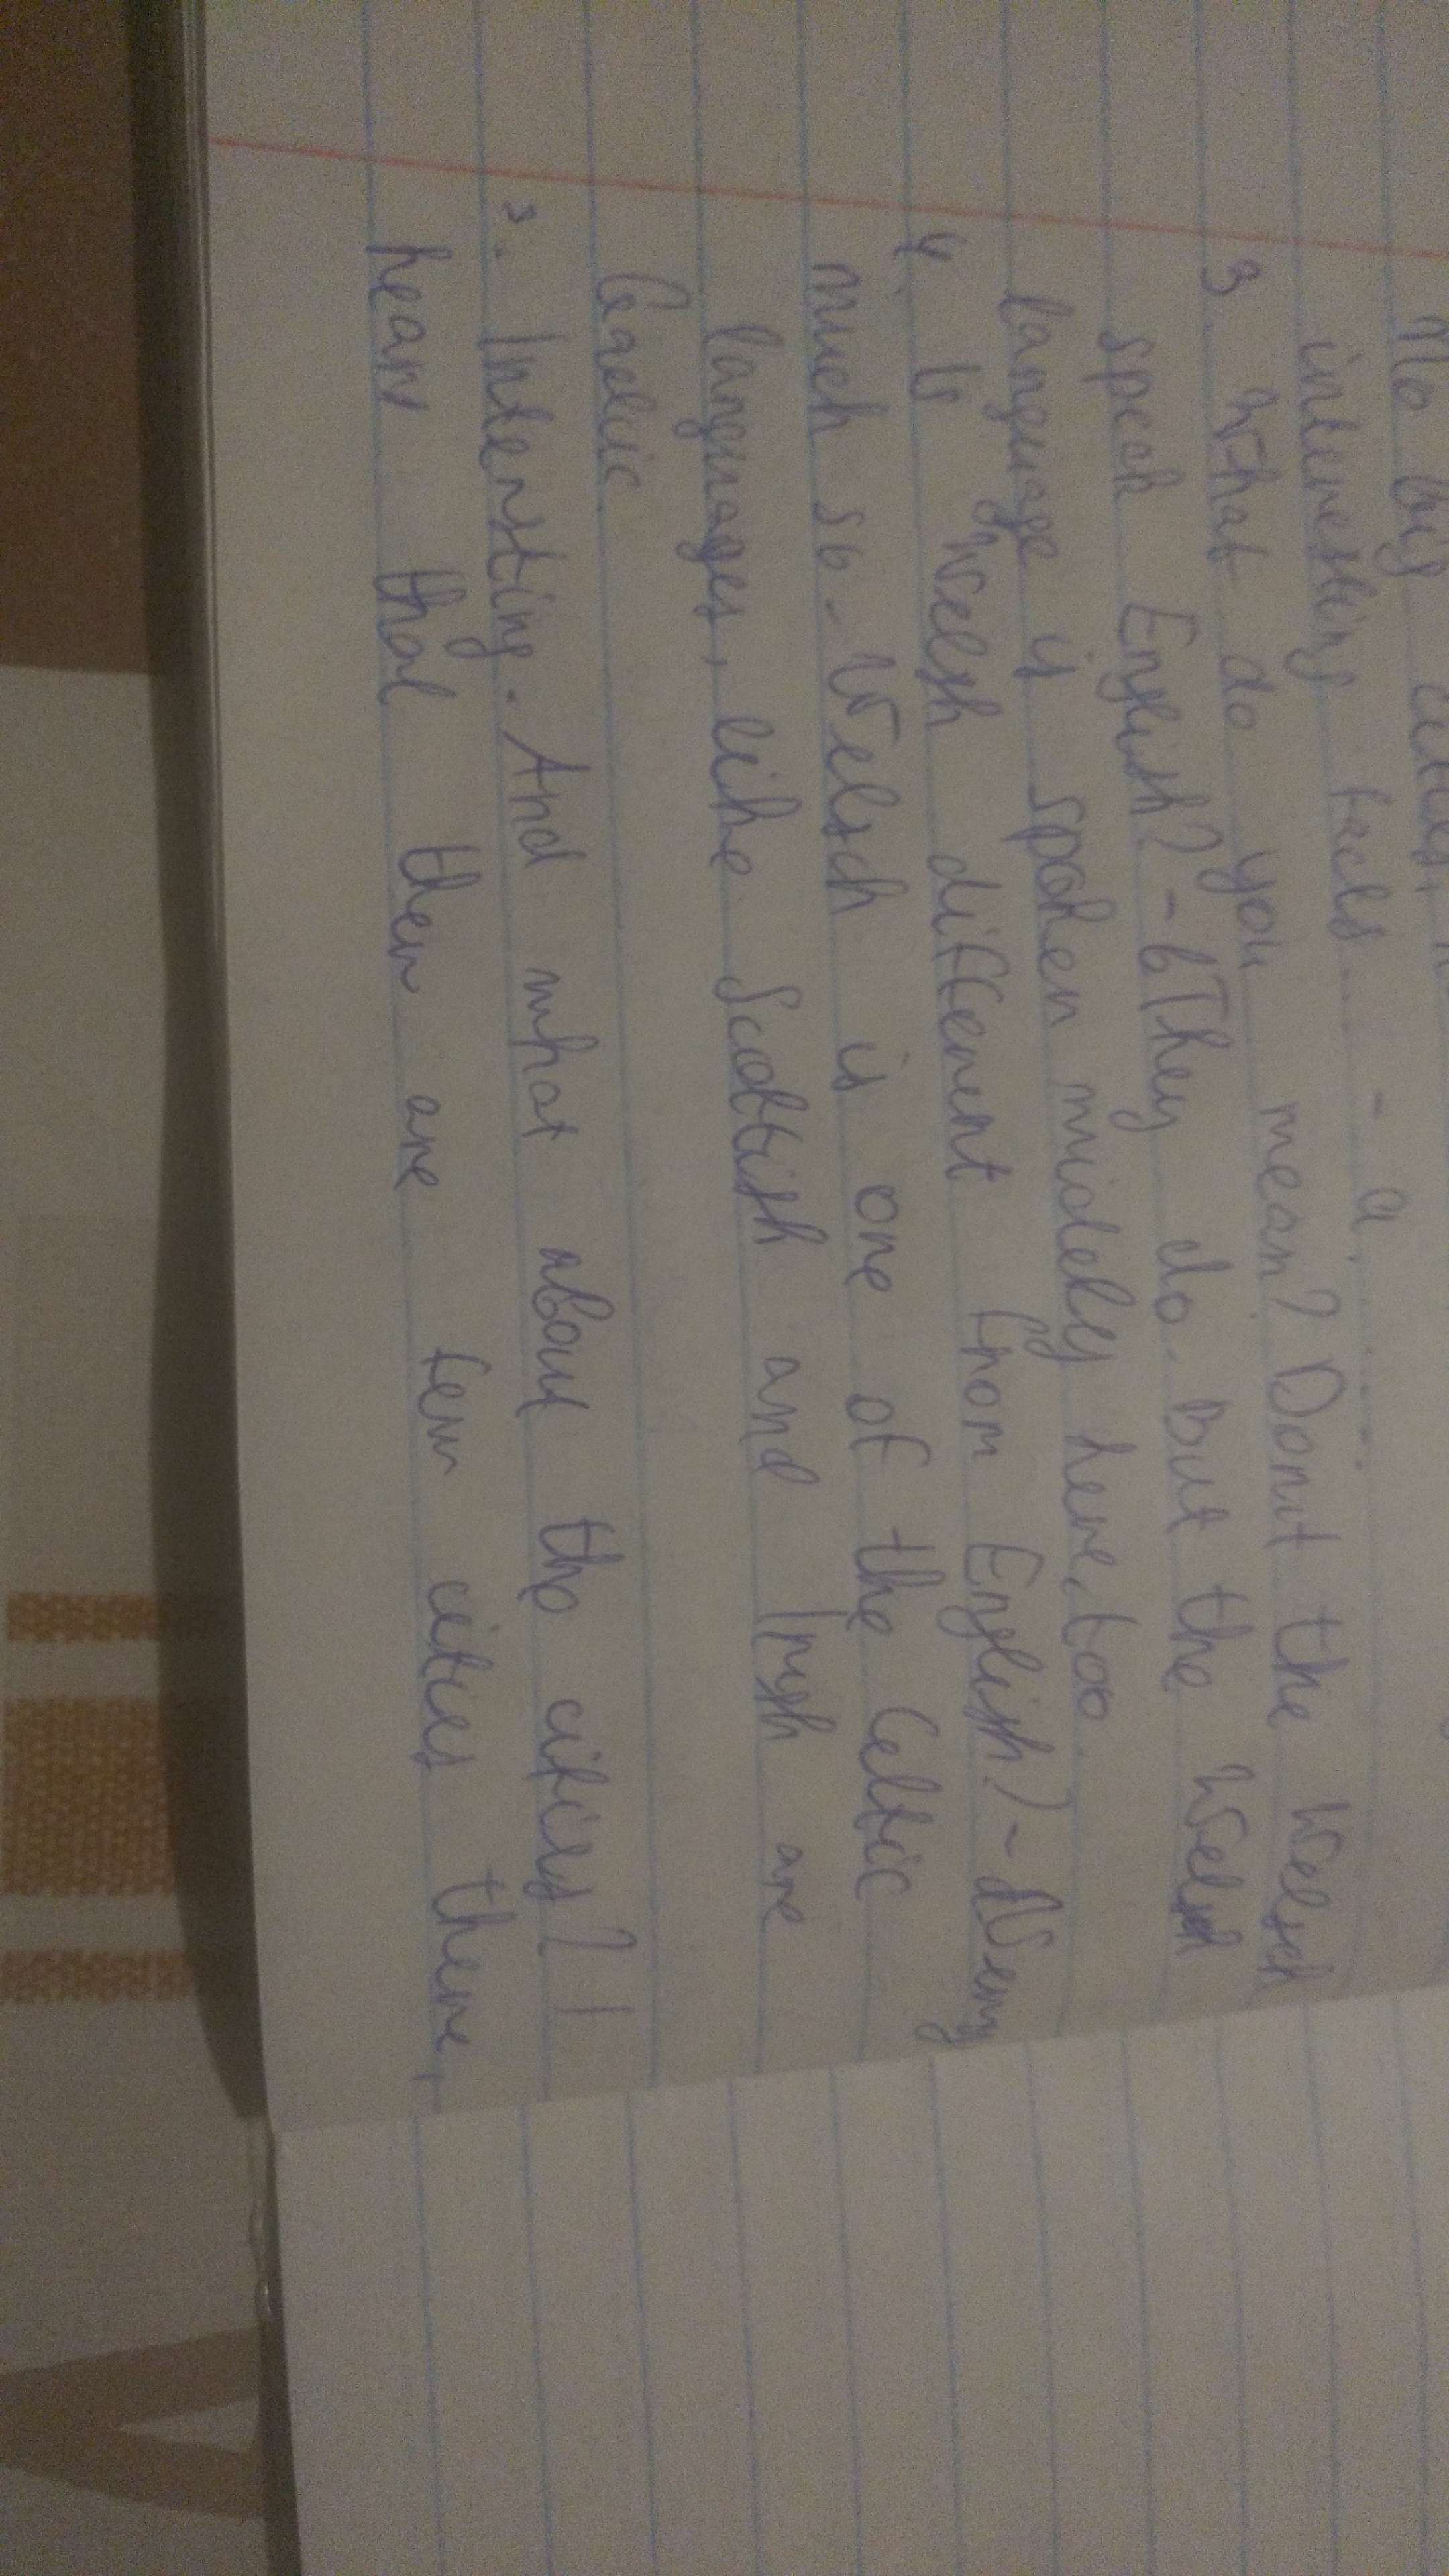 no big cities,
interesting facts - a
3. What do you mean? Don't the Welsch
speak English? - b They do. But the Welsh
language is spoken widely here, too
4. Is Welsh different from English? - d Very
much so. Welsch is one of the Celtic
languages, like Scottish and Irish are
Gaelic
5. Intersting. And what about the cities? I
hear that there are few cities there,